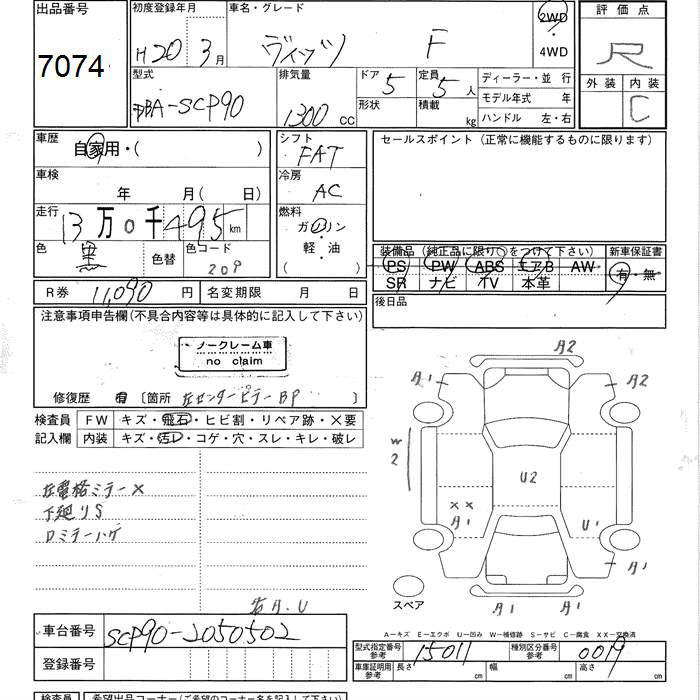 出品番号
7074
初度登録年月
H20年3月
車名・グレード
ヴィッツ F
2WD
4WD
評価点
R
外装 内装
C
型式
DBA-SCP90
排気量
1300 CC
ドア 5
形状
定員 5人
積載 kg
ディーラー・並行
モデル年式 年
ハンドル 左・右
車歴
自家用・( )
車検
年 月( 日)
走行
13万0千495km
色
黒
色替
色コード
209
シフト
FAT
冷房
AC
燃料
ガソリン
軽・油
( )
セールスポイント(正常に機能するものに限ります)
装備品(純正品に限り○をつけて下さい)
PS PW ABS エアB AW
SR ナビ TV 本革
新車保証書
有・無
後日品
R券 11,090円
名変期限 月 日
注意事項申告欄(不具合内容等は具体的に記入して下さい)
ノークレーム車
no claim
修復歴 有 [箇所 左センターピラーBP ]
検査員
記入欄
FW キズ・飛石・ヒビ割・リペア跡・×要
内装 キズ・汚レ・コゲ・穴・スレ・キレ・破レ
左電格ミラー×
下廻りS
Dミラーハゲ
A2
A1
A2
W2
U2
XX
A1
U1
A1
A1
A1
スペア
A-キズ E-エクボ U-凹み W-補修跡 S-サビ C-腐食 XX-交換済
車台番号 SCP90-2050502
登録番号
型式指定番号
参考
15011
種別区分番号
参考
0019
車庫証明用
参考
長さ 幅 高さ
検査員
希望出品コーナー(ご希望のコーナー名を記入下さい)